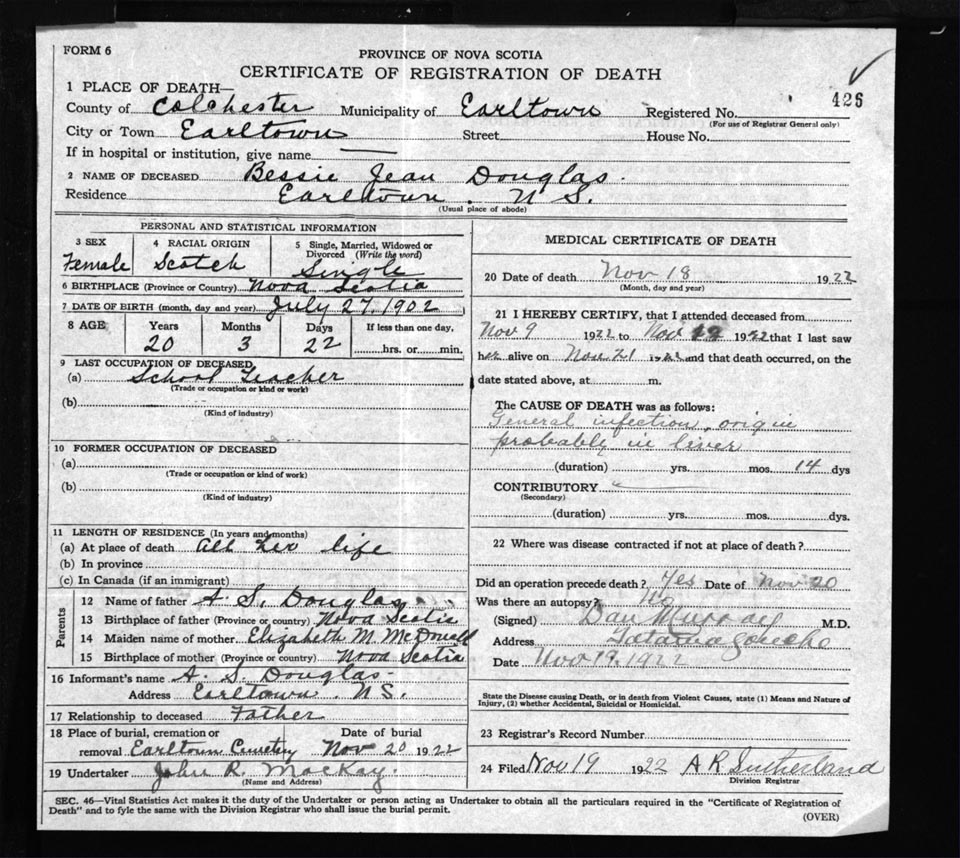 FORM 6
PROVINCE OF NOVA SCOTIA
CERTIFICATE OF REGISTRATION OF DEATH
426
1 PLACE OF DEATH—
County of Colchester Municipality of Earltown Registered No.
(For use of Registrar General only)
City or Town Earltown Street House No.
If in hospital or institution, give name —
2 NAME OF DECEASED Bessie Jean Douglas.
Residence Earltown. N S.
(Usual place of abode)
PERSONAL AND STATISTICAL INFORMATION
3 SEX 4 RACIAL ORIGIN 5 Single, Married, Widowed or Divorced (Write the word)
Female Scotch Single
6 BIRTHPLACE (Province or Country) Nova Scotia
7 DATE OF BIRTH (month, day and year) July 27, 1902
8 AGE Years Months Days If less than one day,
20 3 22 hrs. or min.
9 LAST OCCUPATION OF DECEASED
(a) School Teacher
(Trade or occupation or kind or work)
(b)
(Kind of industry)
10 FORMER OCCUPATION OF DECEASED
(a)
(Trade or occupation or kind of work)
(b)
(Kind of industry)
11 LENGTH OF RESIDENCE (In years and months)
(a) At place of death all her life
(b) In province
(c) In Canada (if an immigrant)
Parents
12 Name of father A. S. Douglas
13 Birthplace of father (Province or country) Nova Scotia
14 Maiden name of mother Elizabeth M. McDonald
15 Birthplace of mother (Province or country) Nova Scotia
16 Informant's name A. S. Douglas
Address Earltown. N.S.
17 Relationship to deceased Father
18 Place of burial, cremation or Date of burial
removal Earltown Cemetery Nov 20 1922
19 Undertaker John R. MacKay.
(Name and Address)
MEDICAL CERTIFICATE OF DEATH
20 Date of death Nov 18 1922
(Month, day and year)
21 I HEREBY CERTIFY, that I attended deceased from
Nov 9 1922 to Nov 1922 that I last saw
alive on Nov 21 1922 and that death occurred, on the
date stated above, at m.
The CAUSE OF DEATH was as follows:
General infection, origin
probably in liver
(duration) yrs. mos. 14 dys
CONTRIBUTORY
(Secondary)
(duration) yrs. mos. dys.
22 Where was disease contracted if not at place of death?
Did an operation precede death? Yes Date of Nov 20
Was there an autopsy? No
(Signed) Dan Murray M.D.
Address Tatamagouche
Date Nov 19, 1922
State the Disease causing Death, or in death from Violent Causes, state (1) Means and Nature of
Injury, (2) whether Accidental, Suicidal or Homicidal.
23 Registrar's Record Number
24 Filed Nov 19 1922 A R Sutherland
Division Registrar
SEC. 46—Vital Statistics Act makes it the duty of the Undertaker or person acting as Undertaker to obtain all the particulars required in the "Certificate of Registration of
Death" and to fyle the same with the Division Registrar who shall issue the burial permit.
(OVER)